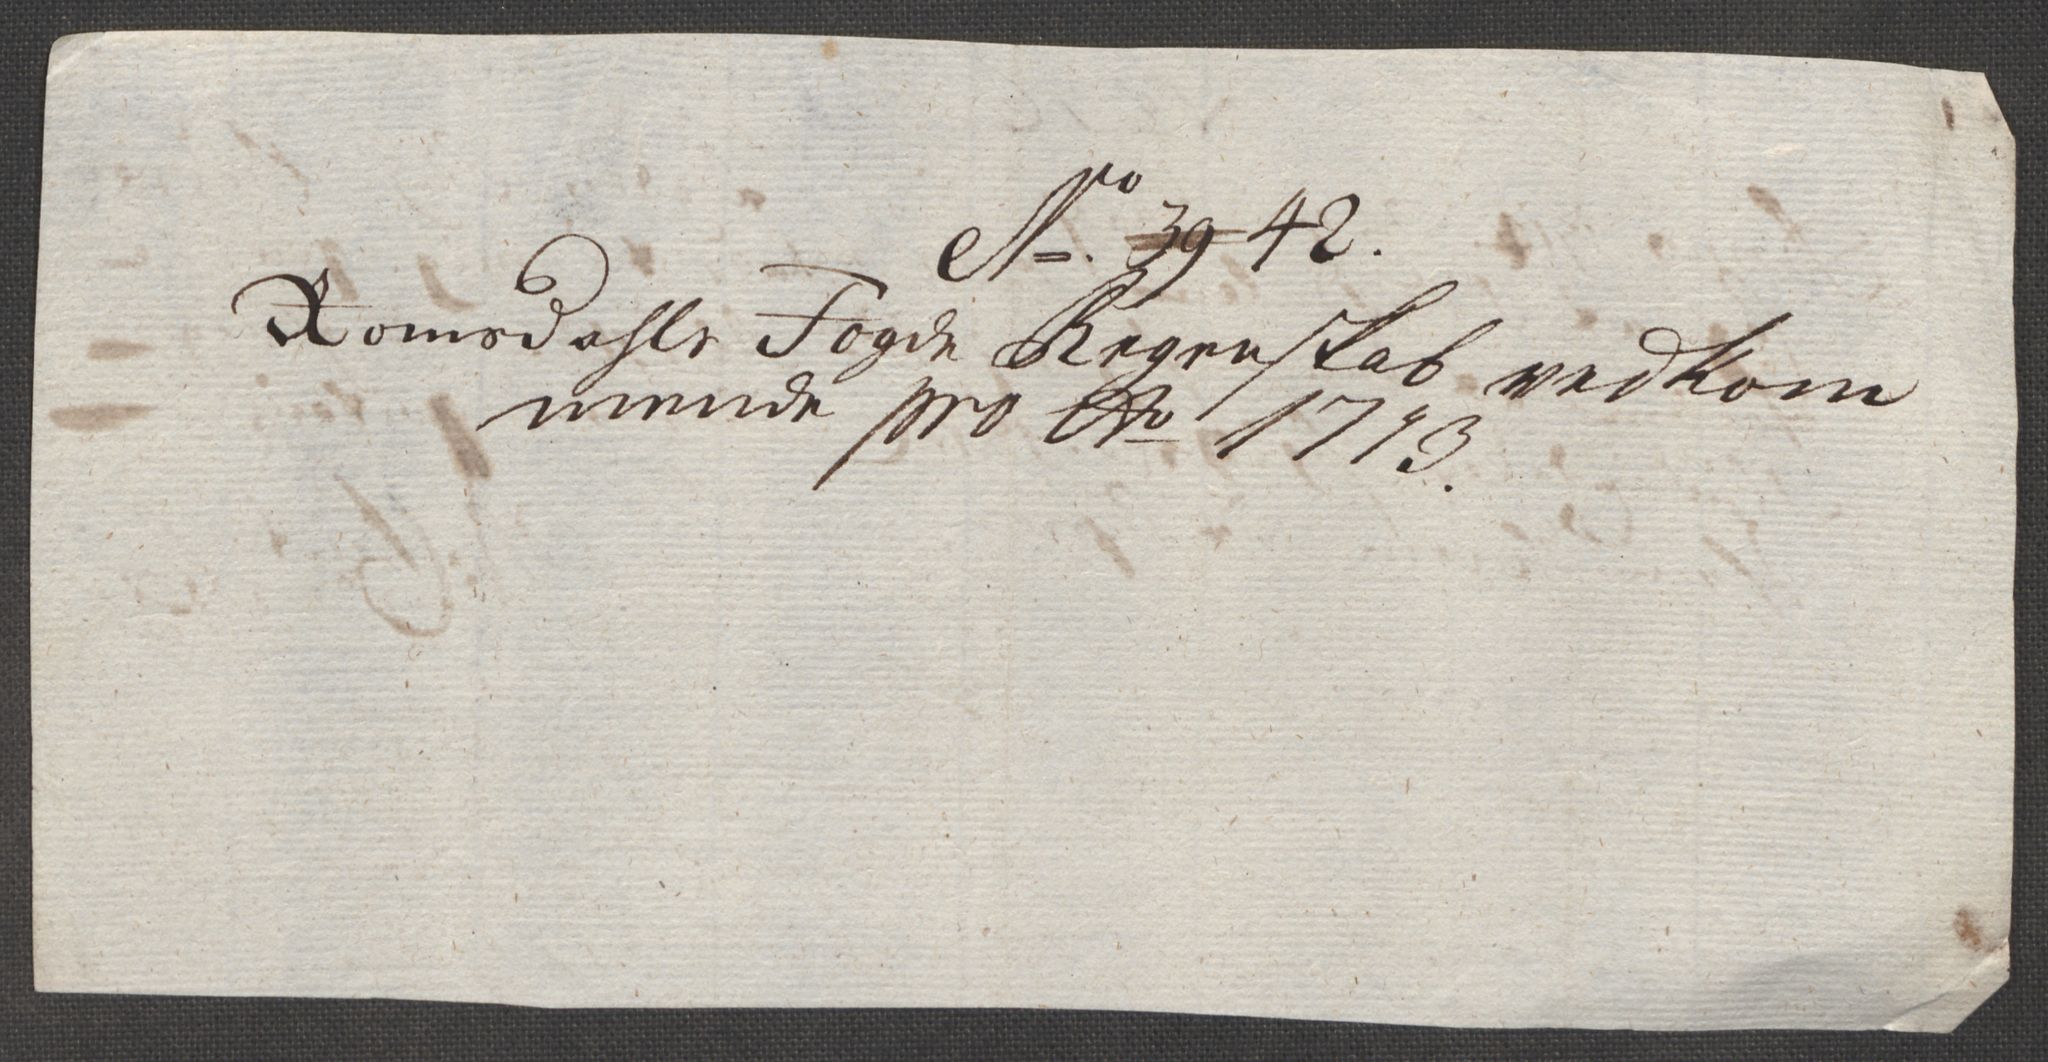 No. 39 42.
Romsdahls Fogde Regenskab vedkom
mende pro Ao 1713.